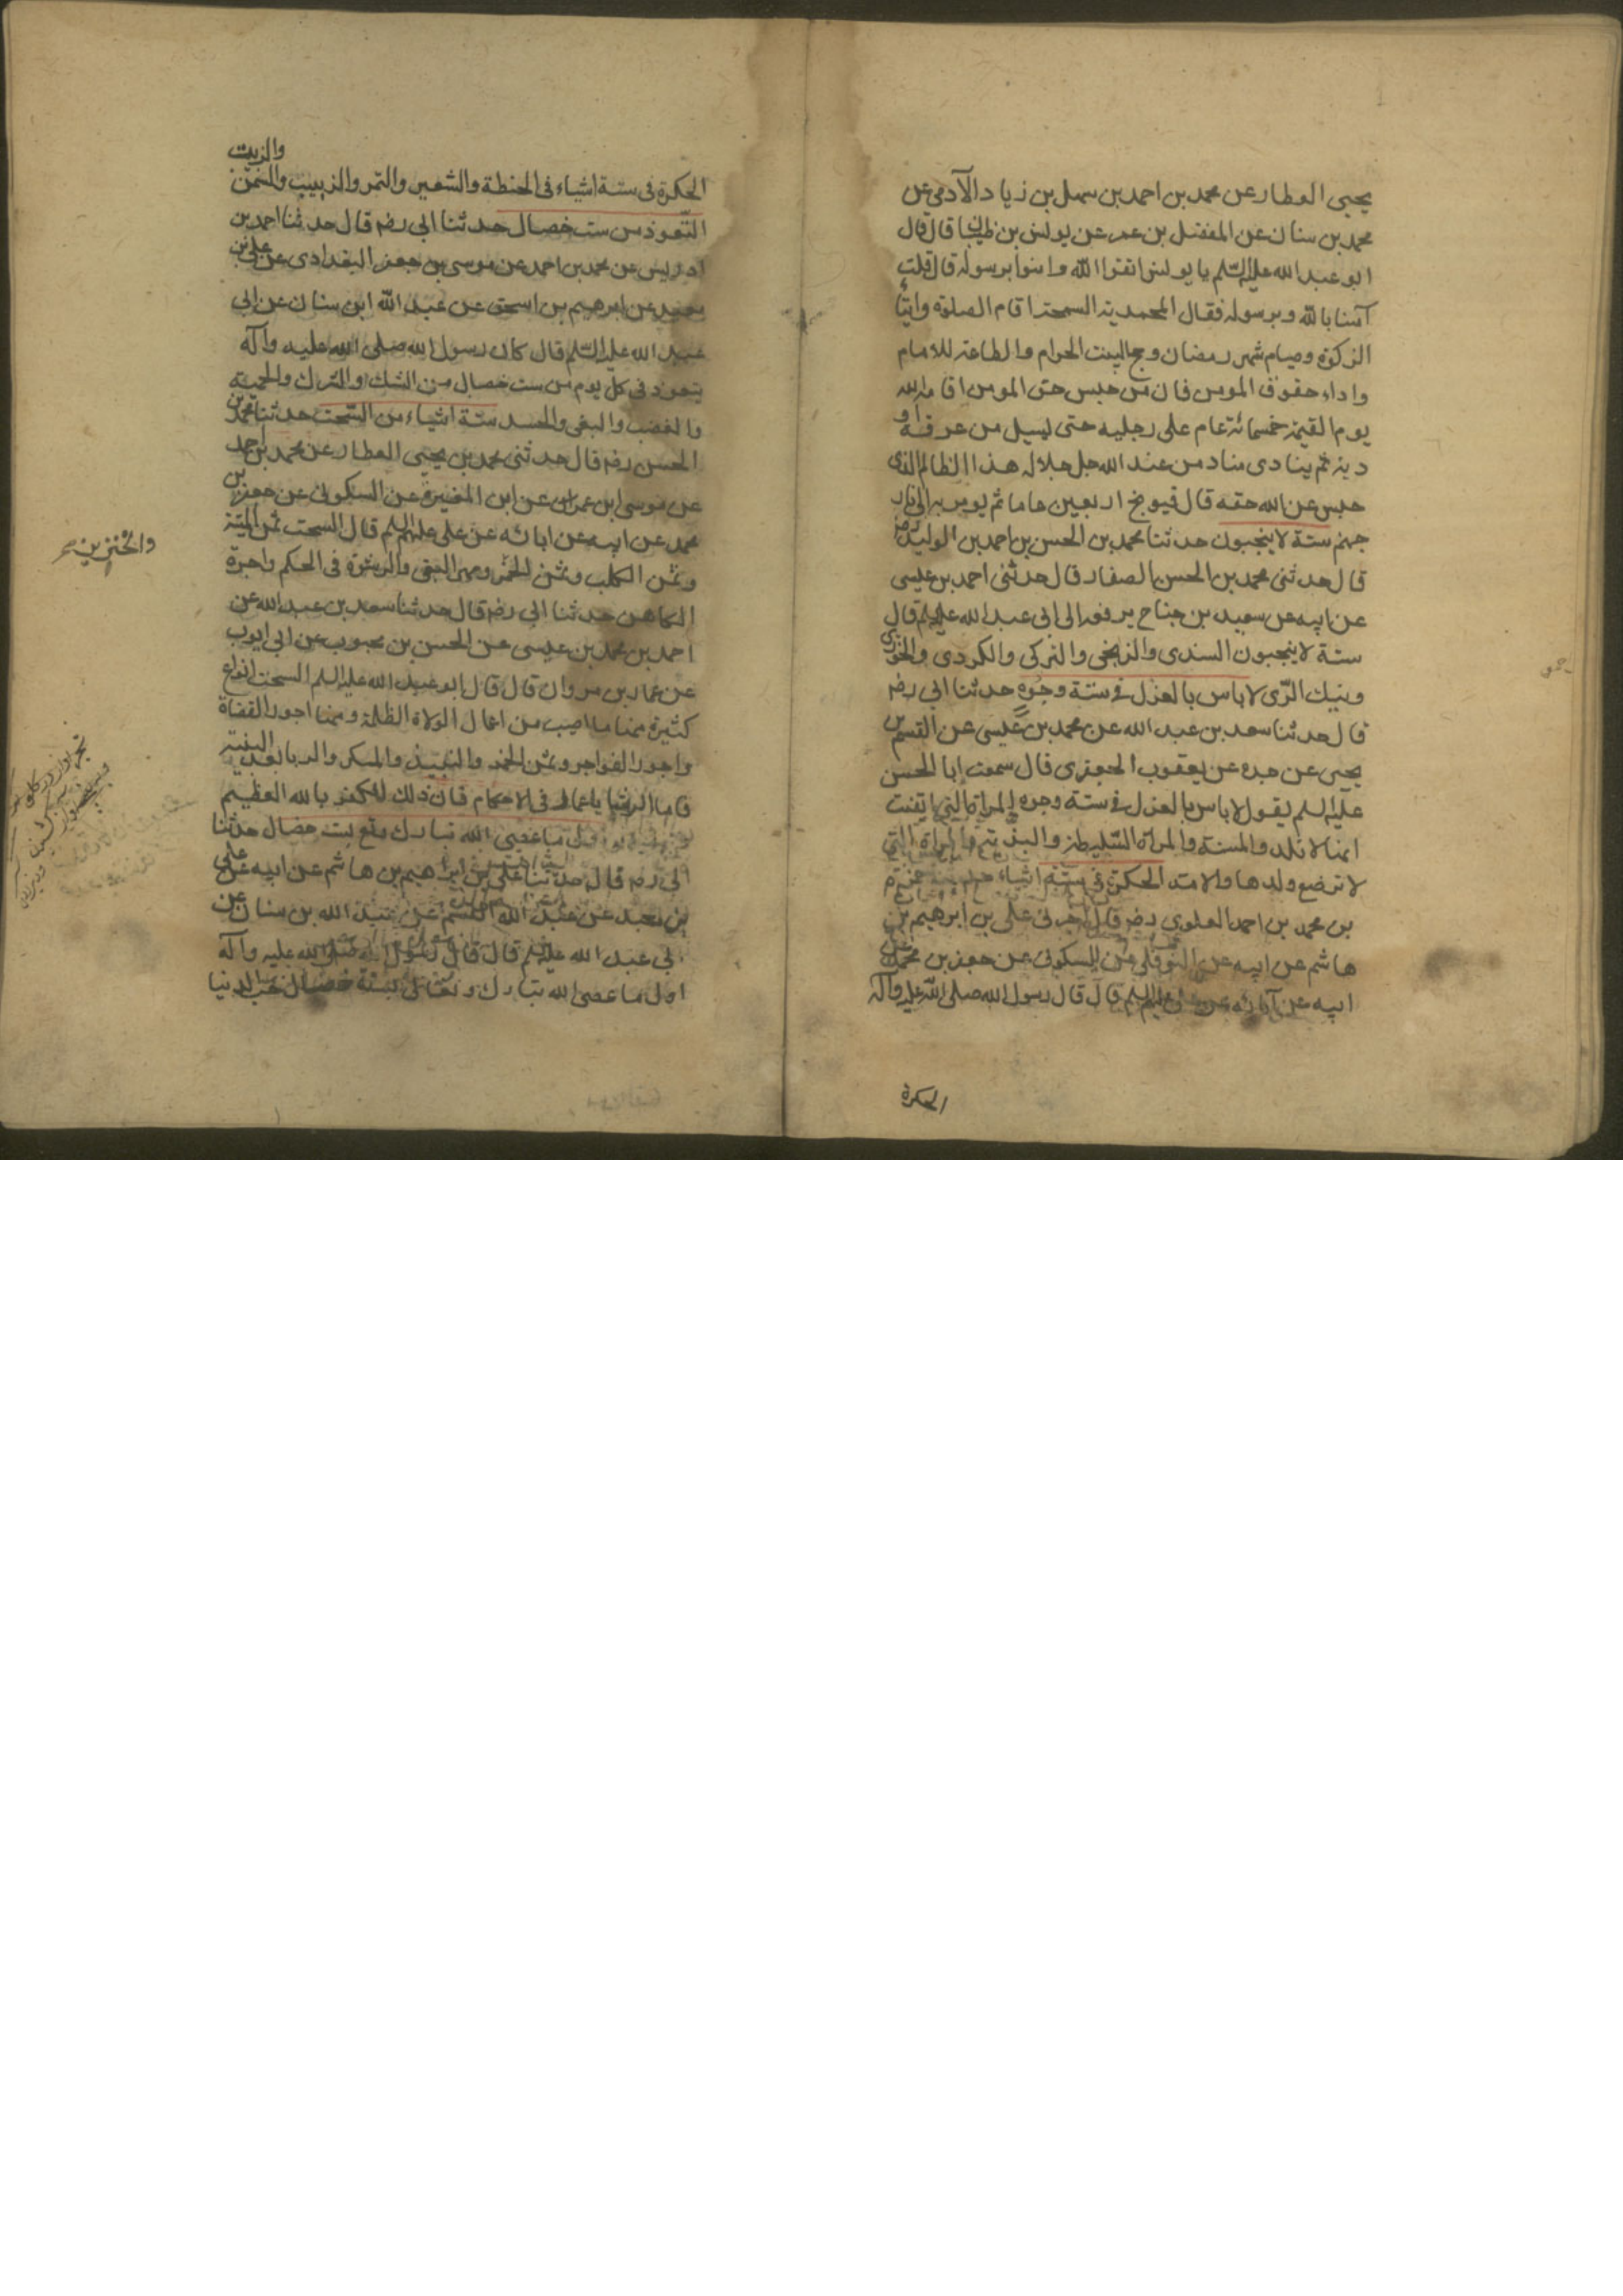 يحيى العطار عن محمد بن احمد بن سهل بن زياد الآدمي عن
محمد بن سنان عن المفضل بن عمر عن يونس بن ظبيان قال قال
ابو عبد الله عليه السّلم يا يونس اتقوا الله وامنوا برسوله قال قلت
آمنا بالله وبرسوله فقال المحمدية السمحة اقام الصلوة وايتاء
الزكوة وصيام شهر رمضان وحج البيت الحرام والطاعة للامام
واداء حقوق المومن فان من حبس حق المومن اقامه الله
يوم القيمة خمسمائة عام على رجليه حتى يسيل من عرقه او
دمه ثم ينادى مناد من عند الله جل جلاله هذا الظالم الذى
حبس عن الله حقه قال فيوبخ اربعين عاما ثم يومر به الى نار
جهنم ستة لا ينجبون حدثنا محمد بن الحسن بن احمد بن الوليد رضـ
قال حدثنى محمد بن الحسن الصفار قال حدثنى احمد بن عيسى
عن ابيه عن سعيد بن جناح يرفعه الى ابى عبد الله عليه السلم قال
ستة لا ينجبون السندى والزنجى والتركى والكردى والخوزى
ونبك الرّى لا باس بالعزل فى ستة وجوه حدثنا ابى رضـ
قال حدثنا سعد بن عبد الله عن محمد بن عيسى عن القسم بن
يحيى عن جده عن يعقوب الجعفرى قال سمعت ابا الحسن
عليه السلم يقول لا باس بالعزل فى ستة وجوه المراة التي ايقنت
انها لا تلد والمسنة والمراة السّليطة والبذية والمراة التي
لا ترضع ولدها والامة الحكرة فى ستة اشياء حمزة
بن محمد بن احمد العلوى رضـ قال اخبرنى على بن ابرهيم بن
هاشم عن ابيه عن النوفلى عن السكونى عن جعفر بن محمد عن
ابيه عن آبائه عن على عليهم السلم قال قال رسول الله صلى الله عليه وآله
الحكرة
والزيت
الحكرة فى ستة اشياء فى الحنطة والشعير والتمر والزبيب والسّمن
التّعوذ من ست خصال حدثنا ابى رضـ قال حدثنا احمد بن
ادريس عن محمد بن احمد عن موسى بن جعفر البغدادى عن على بن
معبد عن ابرهيم بن اسحق عن عبد الله ابن سنان عن ابى
عبد الله عليه السّلم قال كان رسول الله صلى الله عليه وآله
يتعوذ فى كل يوم من ست خصال من الشك والشرك والحمية
والغضب والبغى والحسد ستة اشياء من السّحت حدثنا محمد بن
الحسن رضـ قال حدثنى محمد بن يحيى العطار عن محمد بن احمد
عن موسى ابن عمران عن ابن المغيرة عن السكونى عن جعفر بن
محمد عن ابيه عن ابائه عن على عليهم السلم قال السحت ثمن الميتة
وثمن الكلب وثمن الخمر ومهر البغى والرشوة فى الحكم واجرة
الكاهن حدثنا ابى رضـ قال حدثنا سعد بن عبد الله عن
احمد بن محمد بن عيسى عن الحسن بن محبوب عن ابى ايوب
عن عمار بن مروان قال قال ابو عبد الله عليه السلم السحت انواع
كثيرة منها ما اصيب من اعمال الولاة الظلمة ومنها اجور القضاة
واجور الفواجر وثمن الخمر والنبيذ والمسكر والربا بعد البينة
فاما الرشا يا عمار فى الاحكام فان ذلك الكفر بالله العظيم
اول ما عصى الله تبارك وتع بست خصال حدثنا
ابى رضـ قال حدثنا على بن ابرهيم بن هاشم عن ابيه عن على
بن معبد عن عبد الله القسم عن عبد الله بن سنان عن
ابى عبد الله عليه السلم قال قال رسول الله صلى الله عليه وآله
اول ما عصى الله تبارك وتعالى بستة خصال حب الدنيا